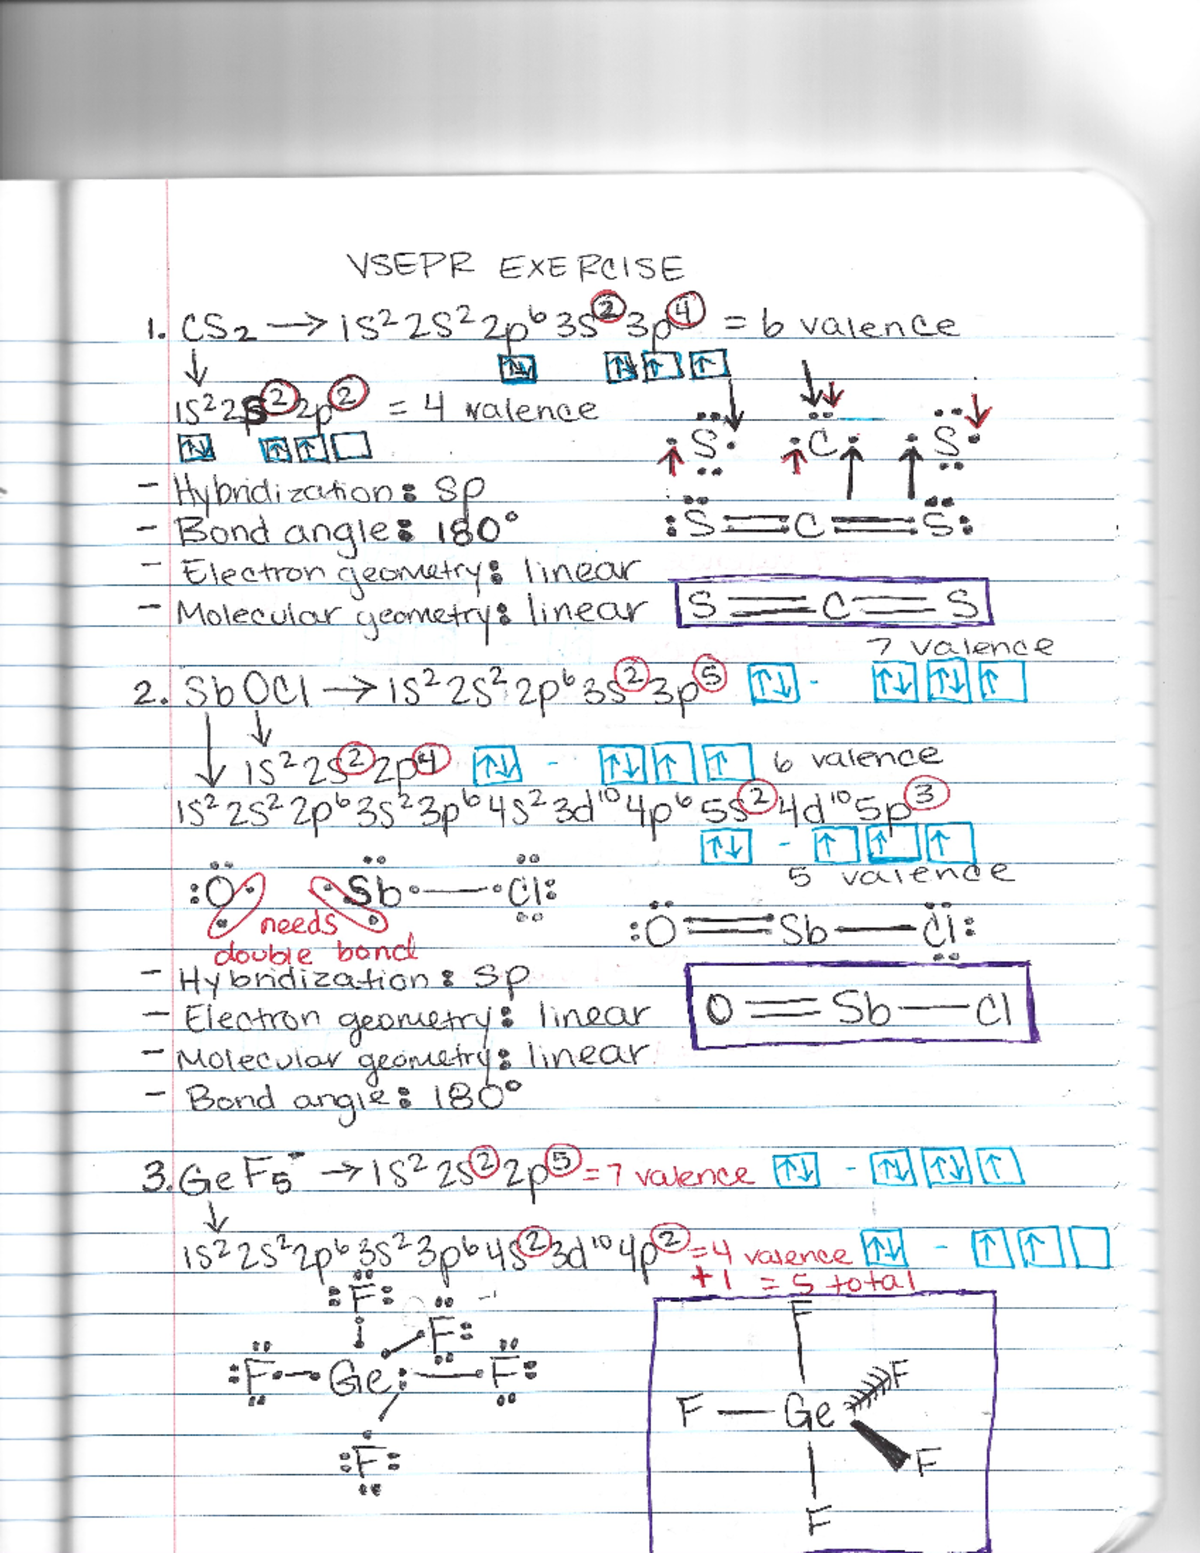 VSEPR EXERCISE
1. CS₂ → 1s²2s²2p⁶3s²3p⁴ = 6 valence
↓ ↑↓ ↑↓ ↑ ↑
1s²2s²2p² = 4 valence
↑↓ ↑ ↑
S C S
- Hybridization: sp
- Bond angle: 180°
:S=C=S:
- Electron geometry: linear
- Molecular geometry: linear
S=C=S
7 valence
2. SbOCl → 1s²2s²2p⁶3s²3p⁵ ↑↓ - ↑↓ ↑↓ ↑
1s²2s²2p⁴ ↑↓ - ↑↓ ↑ ↑ 6 valence
1s²2s²2p⁶3s²3p⁶4s²3d¹⁰4p⁶5s²4d¹⁰5p³
↑↓ - ↑ ↑ ↑
5 valence
:O Sb—Cl:
needs
double bond
:O=Sb—Cl:
- Hybridization: sp
- Electron geometry: linear
O=Sb—Cl
- Molecular geometry: linear
- Bond angle: 180°
3. GeF₅⁻ → 1s²2s²2p⁵ = 7 valence ↑↓ - ↑↓ ↑↓ ↑
↓
1s²2s²2p⁶3s²3p⁶4s²3d¹⁰4p² = 4 valence ↑↓ - ↑ ↑
+1 = 5 total
:F: -1
F:
:F—Ge:—F:
:F:
F
F
F—Ge
F
F